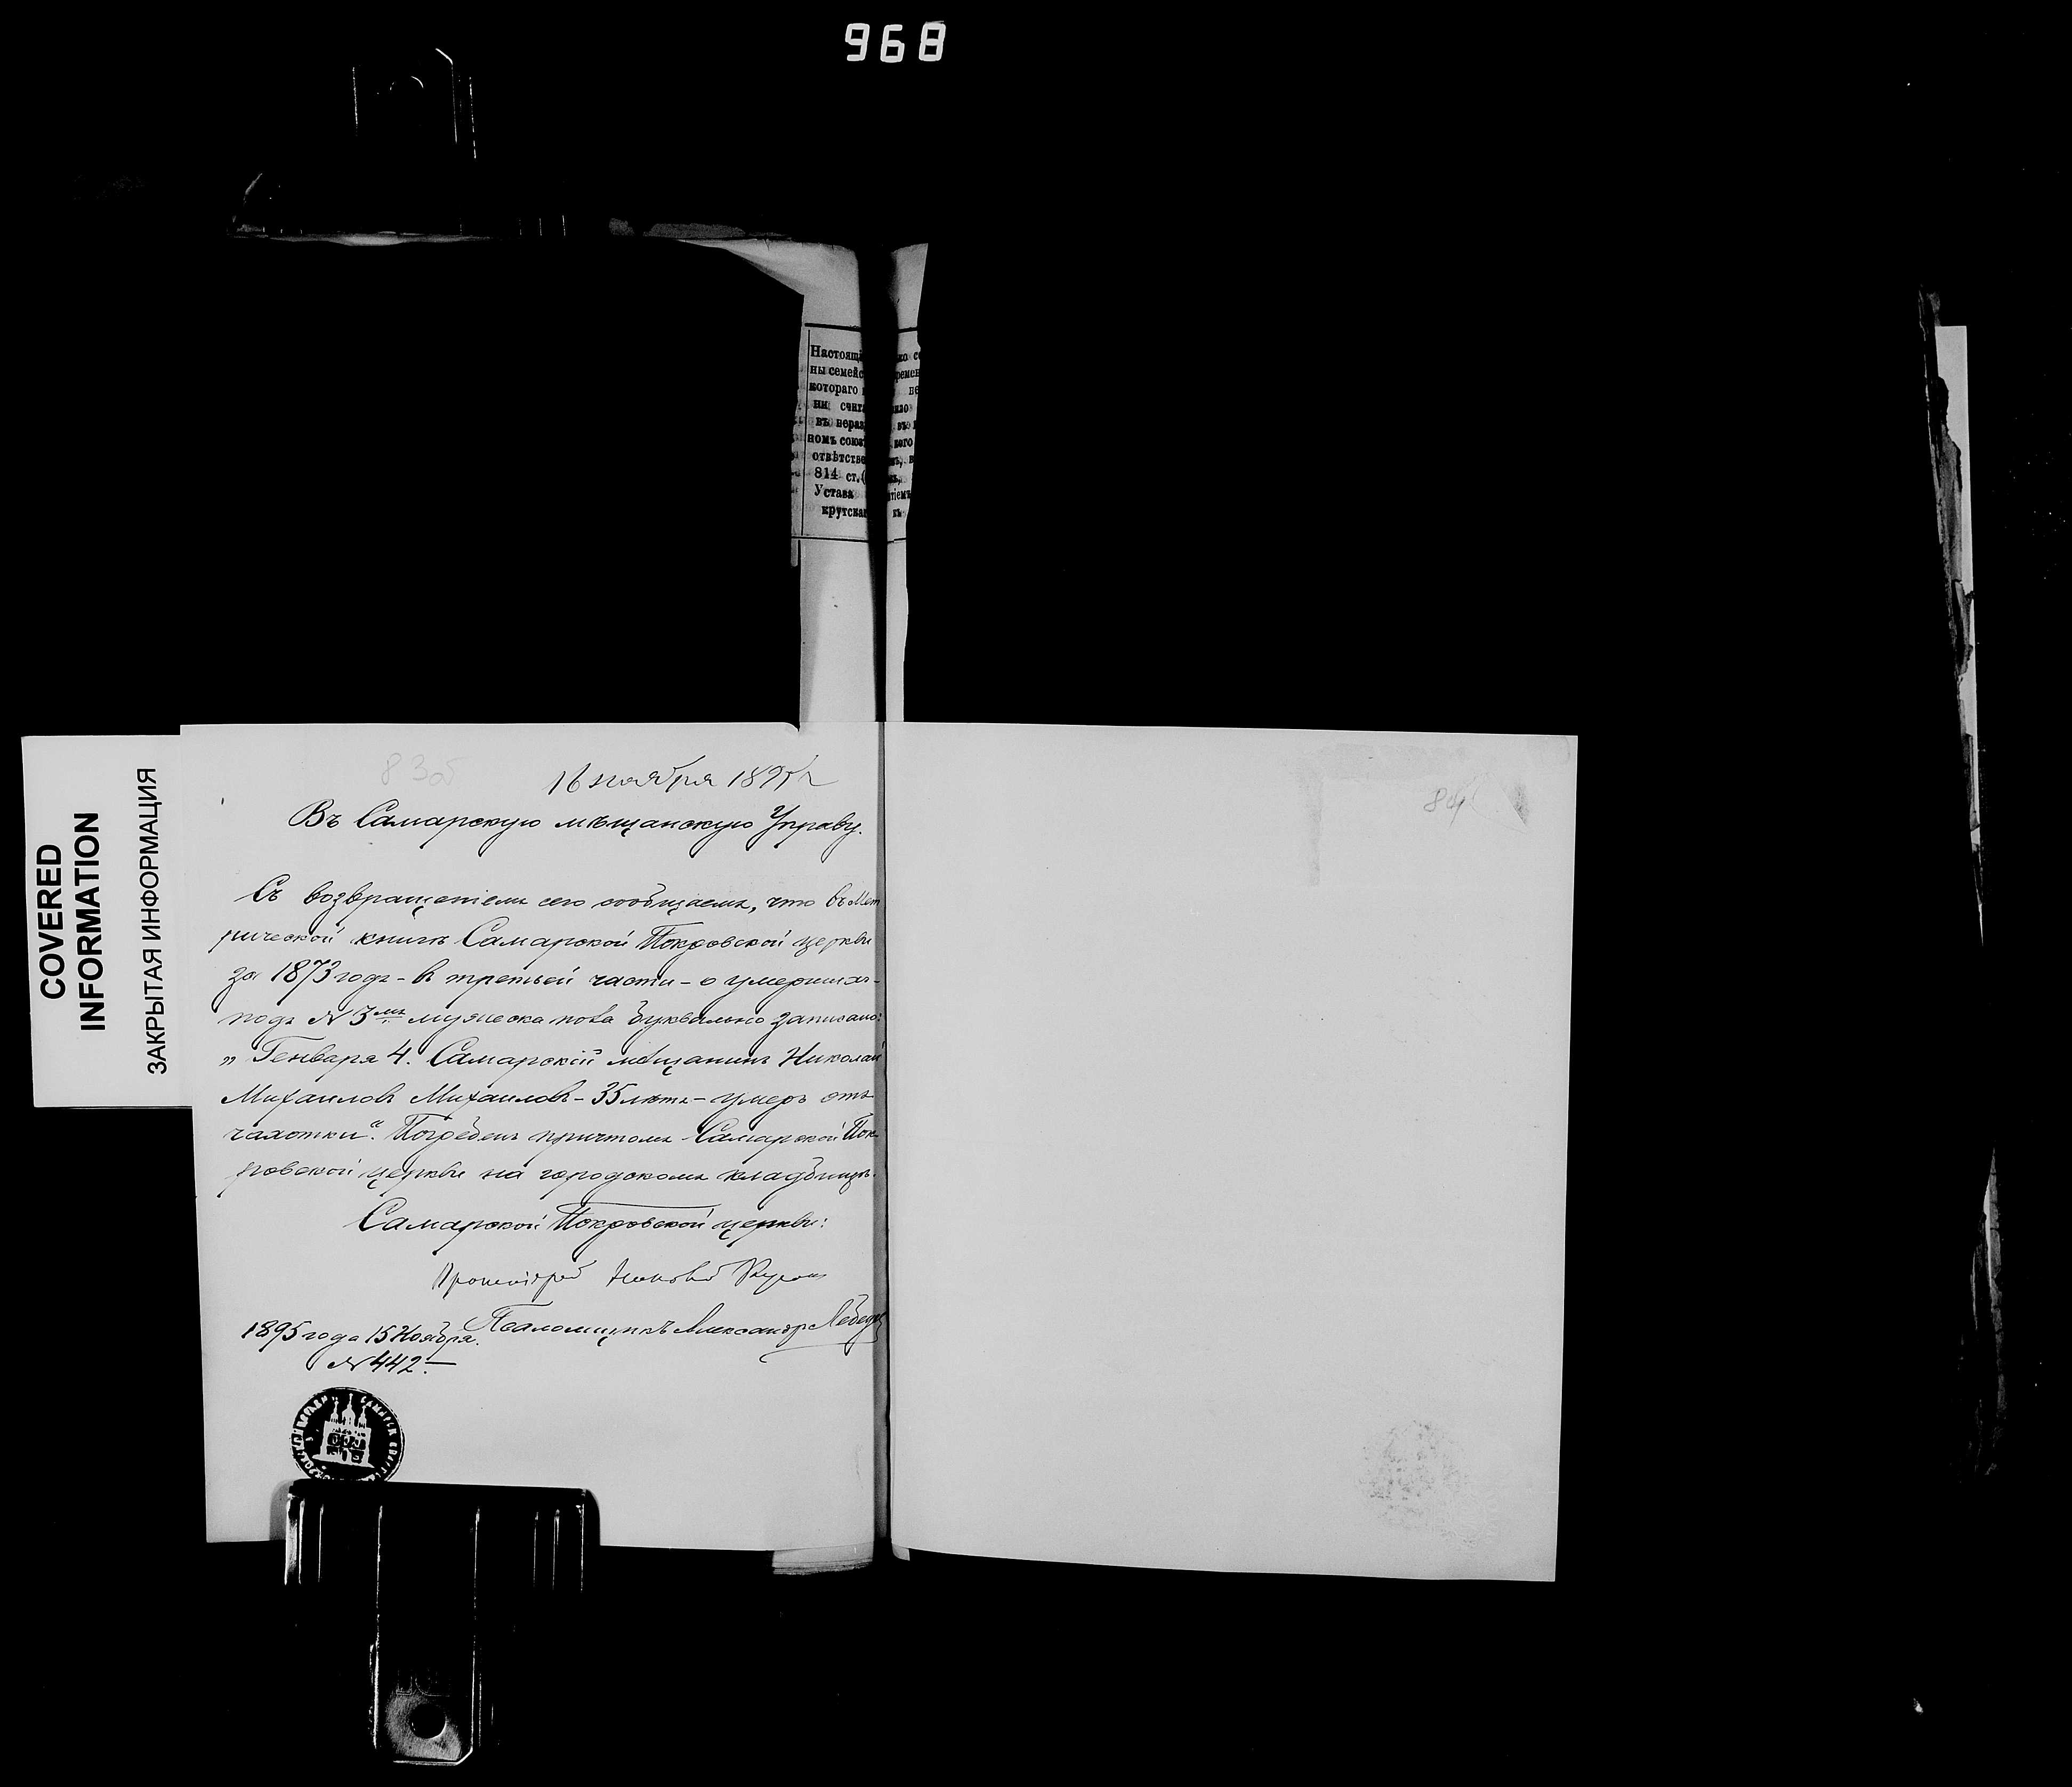 968
Настоящ
ны семейс
котораго
ни счит
въ нераз
номъ союз
отвѣтстве
814 ст.
Устава
крутска
COVERED
INFORMATION
ЗАКРЫТАЯ ИНФОРМАЦИЯ
83об
16 ноября 1895 г
Въ Самарскую мѣщанскую Управу.
Съ возвращеніемъ сего сообщаемъ, что въ Мет
рической книгѣ Самарской Покровской церкви
за 1873 годъ - въ третьей части - о умершихъ -
подъ № 3мъ мужеска пола буквально записано:
„Генваря 4. Самарскій мѣщанинъ Николай
Михаиловъ Михаиловъ - 35 лѣтъ - умеръ отъ
чахотки“. Погребенъ причтомъ Самарской Пок
ровской церкви на городскомъ кладбищѣ.
Самарской Покровской церкви:
Протоіерей
Псаломщикъ Александръ Лебедев
1895 года 15 Ноября.
№ 442.
84